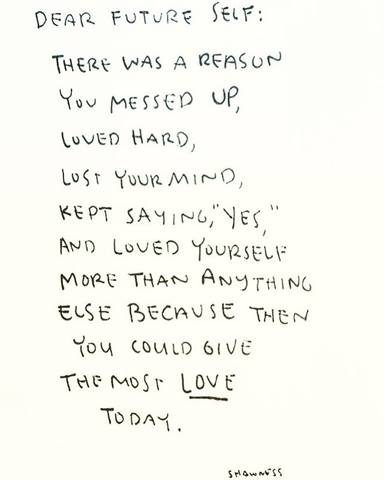 DEAR FUTURE SELF:
THERE WAS A REASON
YOU MESSED UP,
LOVED HARD,
LOST YOUR MIND,
KEPT SAYING, "YES,"
AND LOVED YOURSELF
MORE THAN ANYTHING
ELSE BECAUSE THEN
YOU COULD GIVE
THE MOST LOVE
TODAY.
SHAWNESS